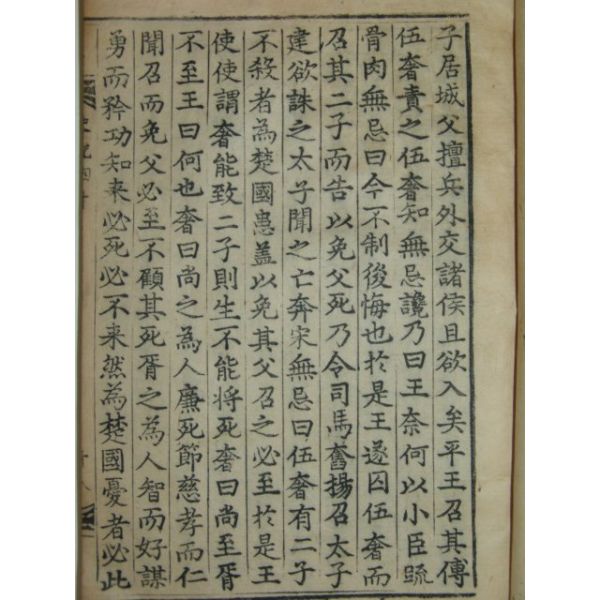 子居城父擅兵外交諸侯且欲入矣平王召其傅
伍奢責之伍奢知無忌讒乃曰王奈何以小臣䟽
骨肉無忌曰今不制後悔也於是王遂囚伍奢而
召其二子而告以免父死乃令司馬奮揚召太子
建欲誅之太子聞之亡奔宋無忌曰伍奢有二子
不殺者為楚國患盖以免其父召之必至於是王
使使謂奢能致二子則生不能将死奢曰尚至胥
不至王曰何也奢曰尚之為人廉死節慈孝而仁
聞召而免父必至不顧其死胥之為人智而好謀
勇而矜功知来必死必不来然為楚國憂者必此